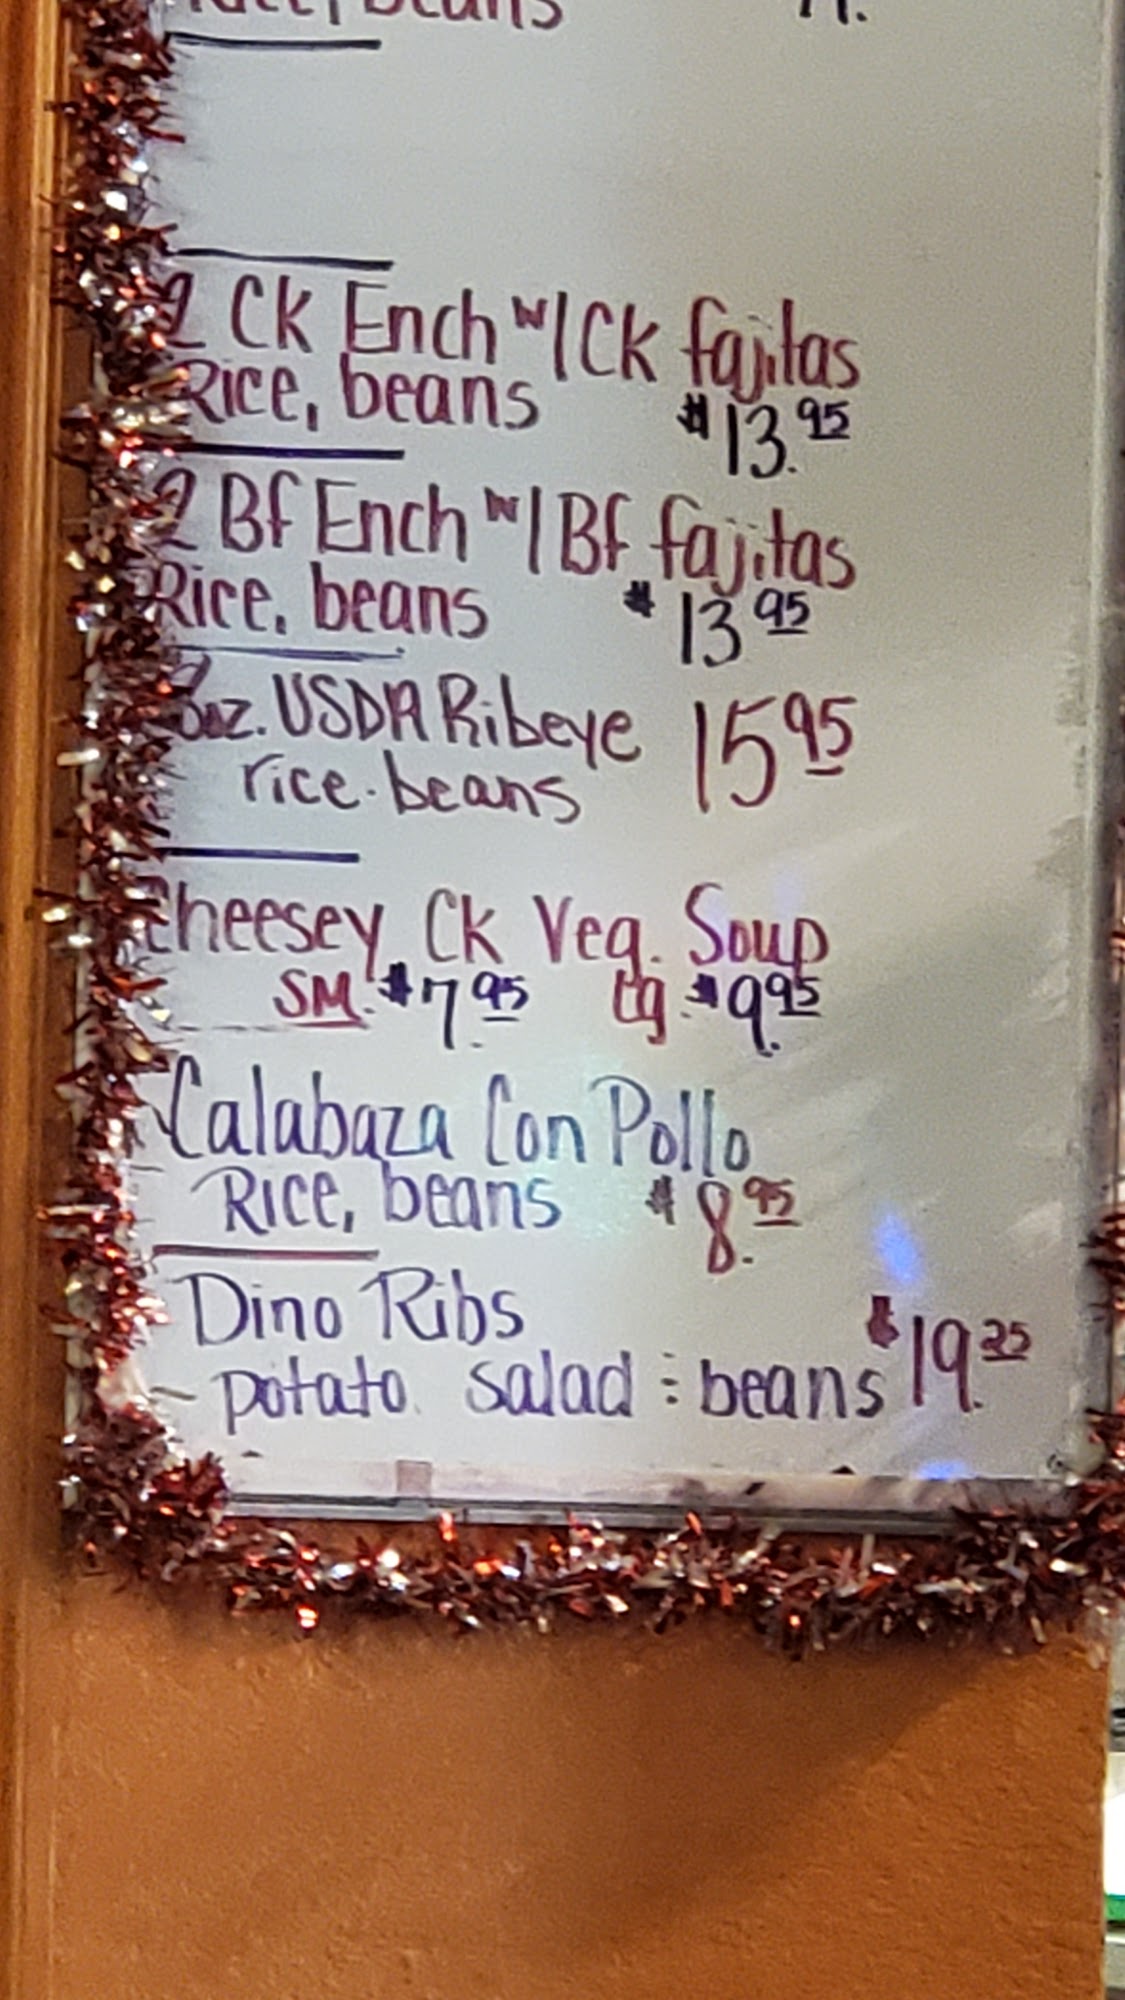 beans
2 Ck Ench w/ Ck fajitas
Rice, beans $13.95
2 Bf Ench w/ Bf fajitas
Rice, beans $13 95
8oz. USDA Ribeye 15 95
rice. beans
Cheesey Ck Veg. Soup
SM. $7.95 Lg. $9.95
Calabaza Con Pollo
Rice, beans $8.95
Dino Ribs
potato salad : beans $19.25